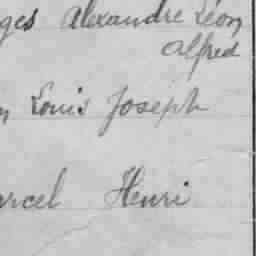 ges Alexandre Léon
Alfred
n Louis Joseph
arcel Henri